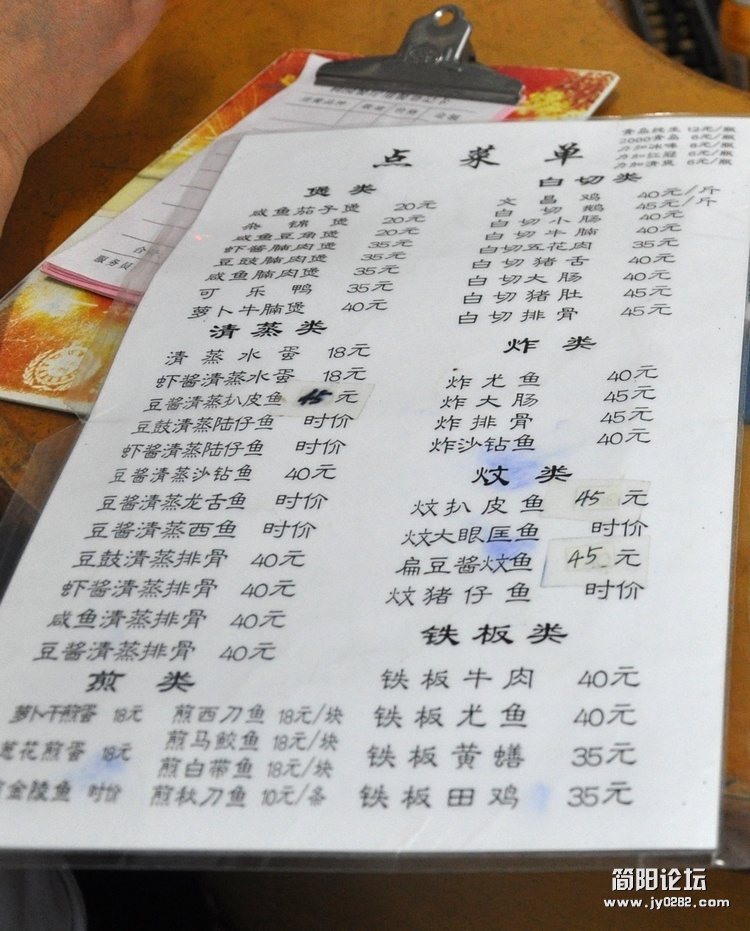 点菜单
青岛纯生 12元/瓶
2000青岛 6元/瓶
力加冰啤 8元/瓶
力加红冠 6元/瓶
力加清爽 6元/瓶
煲类
咸鱼茄子煲 20元
杂锦煲 20元
咸鱼豆角煲 20元
虾酱腩肉煲 35元
豆豉腩肉煲 35元
咸鱼腩肉煲 35元
可乐鸭 35元
萝卜牛腩煲 40元
清蒸类
清蒸水蛋 18元
虾酱清蒸水蛋 18元
豆酱清蒸扒皮鱼 45元
豆鼓清蒸陆仔鱼 时价
虾酱清蒸陆仔鱼 时价
豆酱清蒸沙钻鱼 40元
豆酱清蒸龙舌鱼 时价
豆酱清蒸西鱼 时价
豆鼓清蒸排骨 40元
虾酱清蒸排骨 40元
咸鱼清蒸排骨 40元
豆酱清蒸排骨 40元
煎类
萝卜干煎蛋 18元
葱花煎蛋 18元
煎金陵鱼 时价
煎西刀鱼 18元/块
煎马鲛鱼 18元/块
煎白带鱼 18元/块
煎秋刀鱼 10元/条
白切类
文昌鸡 40元/斤
白切鹅 45元/斤
白切小肠 40元
白切牛腩 40元
白切五花肉 35元
白切猪舌 40元
白切大肠 40元
白切猪肚 45元
白切排骨 45元
炸类
炸尤鱼 40元
炸大肠 45元
炸排骨 45元
炸沙钻鱼 40元
炆类
炆扒皮鱼 45元
炆大眼匡鱼 时价
扁豆酱炆鱼 45元
炆猪仔鱼 时价
铁板类
铁板牛肉 40元
铁板尤鱼 40元
铁板黄蟮 35元
铁板田鸡 35元
简阳论坛
www.jy0282.com